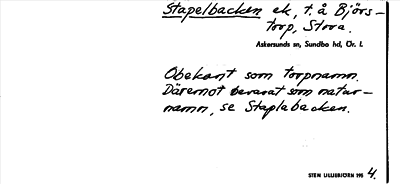 Stapelbacken ek, t. å Björs-
torp, Stora.
Askersunds sn, Sundbo hd, Ör. l.
Obekant som torpnamn.
Däremot bevarat som natur-
namn, se Staplabacken.
STEN ULLIEBJÖRN 195 4.